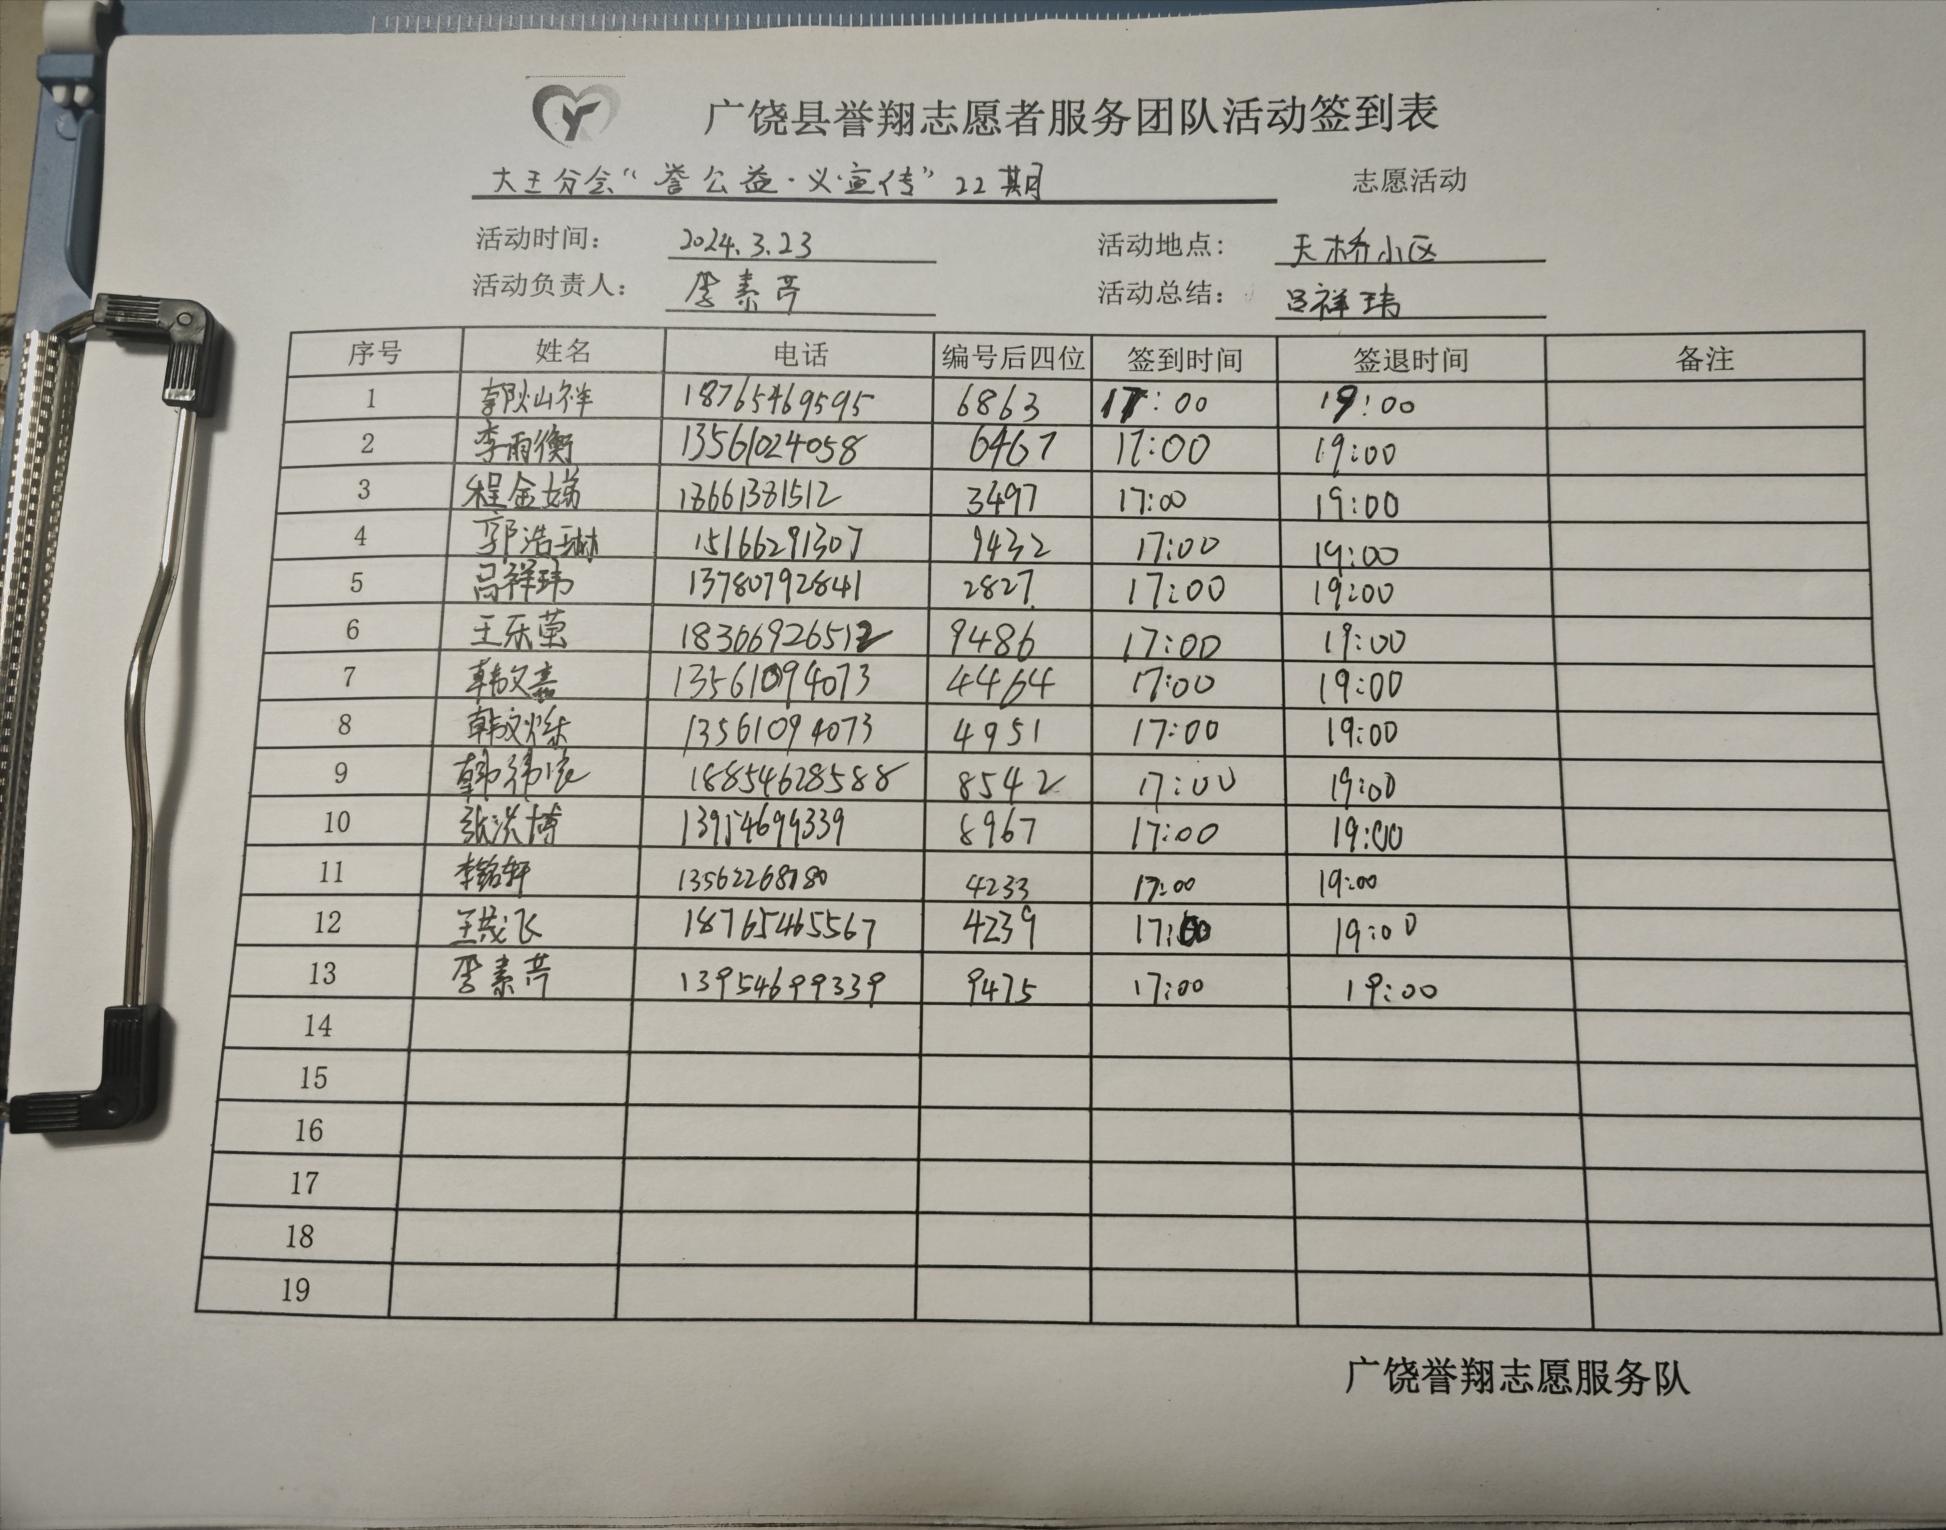 广饶县誉翔志愿者服务团队活动签到表
大王分会“誉公益·义宣传”22期 志愿活动
活动时间： 2024.3.23 活动地点： 天桥小区
活动负责人： 李素芹 活动总结： 吕祥玮
序号 姓名 电话 编号后四位 签到时间 签退时间 备注
1 18765469595 6863 17:00 19:00
2 李雨衡 13561024058 6467 17:00 19:00
3 程金娣 18661381512 3497 17:00 19:00
4 郭浩琳 15166291307 9432 17:00 19:00
5 吕祥玮 13780792841 2827 17:00 19:00
6 王乐萤 18306926512 9486 17:00 19:00
7 韩文嘉 13561094073 4464 17:00 19:00
8 韩文烁 13561094073 4951 17:00 19:00
9 韩 18854628588 8542 17:00 19:00
10 张洪博 13954699339 8967 17:00 19:00
11 李铭轩 13562268780 4233 17:00 19:00
12 王茂飞 18765465567 4239 17:00 19:00
13 李素芹 13954699339 9475 17:00 19:00
14
15
16
17
18
19
广饶誉翔志愿服务队